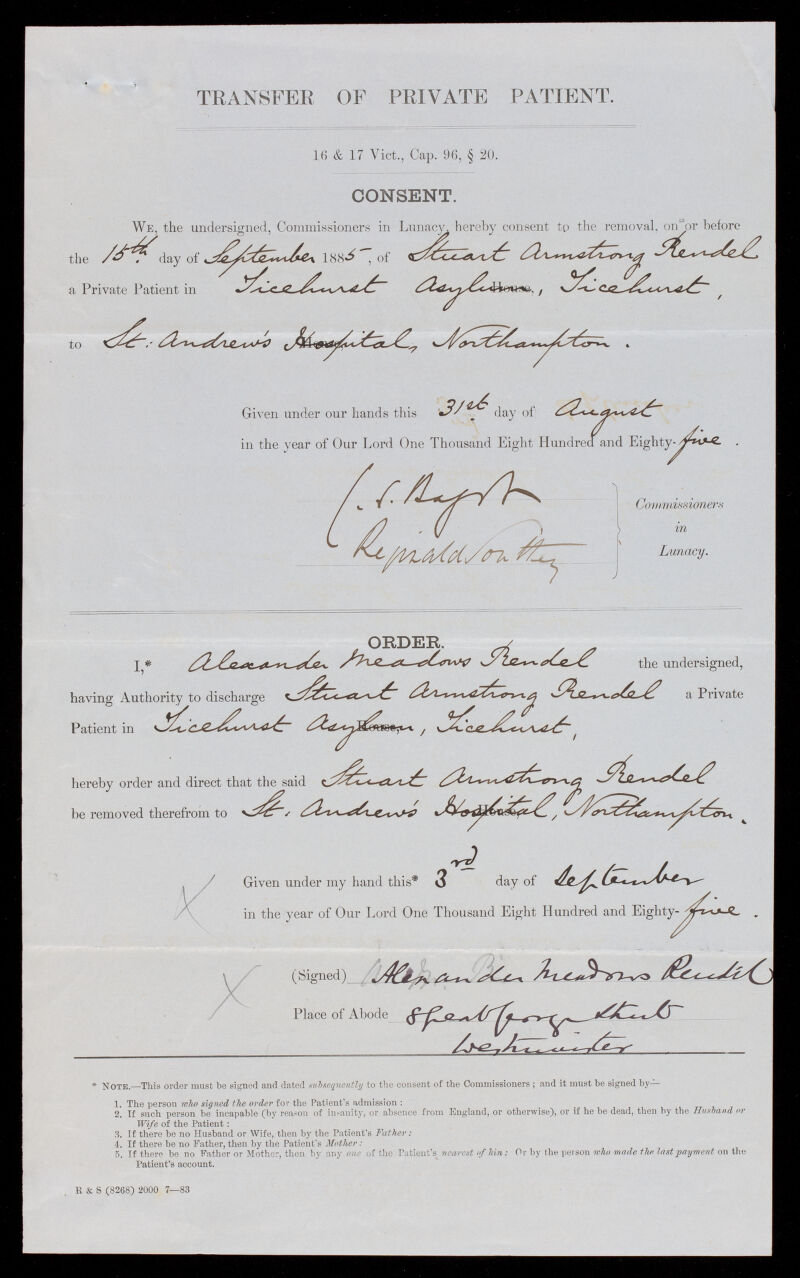 TRANSFER OF PRIVATE PATIENT.
16 & 17 Vict., Cap. 96, § 20.
CONSENT.
WE, the undersigned, Commissioners in Lunacy, hereby consent to the removal, on or before
the 15th day of September 1885, of Stuart Armstrong Rendel
a Private Patient in Ticehurst Asylum, Ticehurst,
to St. Andrew's Hospital, Northampton.
Given under our hands this 31st day of August
in the year of Our Lord One Thousand Eight Hundred and Eighty-five.
C. S. Bagot
Reginald Southey
Commissioners
in
Lunacy.
ORDER.
I,* Alexander Meadows Rendel the undersigned,
having Authority to discharge Stuart Armstrong Rendel a Private
Patient in Ticehurst Asylum, Ticehurst,
hereby order and direct that the said Stuart Armstrong Rendel
be removed therefrom to St. Andrew's Hospital, Northampton.
Given under my hand this* 3rd day of September
in the year of Our Lord One Thousand Eight Hundred and Eighty-five.
(Signed) Alexander Meadows Rendel
Place of Abode 8 Great George Street
Westminster
* NOTE.—This order must be signed and dated subsequently to the consent of the Commissioners; and it must be signed by—
1. The person who signed the order for the Patient's admission:
2. If such person be incapable (by reason of insanity, or absence from England, or otherwise), or if he be dead, then by the Husband or
Wife of the Patient:
3. If there be no Husband or Wife, then by the Patient's Father:
4. If there be no Father, then by the Patient's Mother:
5. If there be no Father or Mother, then by any one of the Patient's nearest of kin: Or by the person who made the last payment on the
Patient's account.
R & S (8268) 2000 7—83